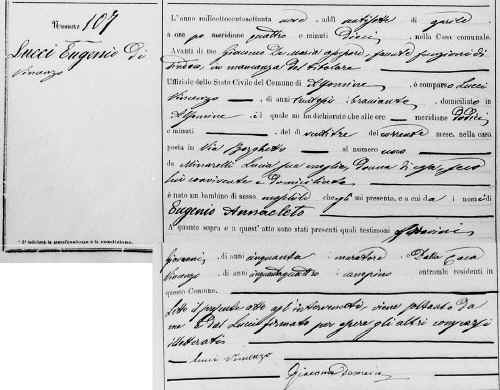 Numero 107
Lucci Eugenio di
Vincenzo
L'anno milleottocentosettanta nove, addì ventisette di Aprile
a ore po meridiane quattro e minuti Dieci, nella Casa comunale.
Avanti di me Giacomo facente funzioni di
Sindaco, in mancanza del titolare
Uffiziale dello Stato Civile del Comune di Alfonsine, è comparso Lucci
Vincenzo, di anni bracciante, domiciliato in
Alfonsine, il quale mi ha dichiarato che alle ore meridiane dodici
e minuti, del dì ventitre del corrente mese, nella casa
posta in Via Borghetto al numero uno
da Minarelli Lucia sua moglie, donna di casa, seco
lui convivente e domiciliata
è nato un bambino di sesso maschile che egli mi presenta, e a cui da i nomi di
Eugenio Annacleto
A quanto sopra e a quest'atto sono stati presenti quali testimoni
Giovanni, di anni cinquanta, muratore, e Dalla Casa
Vincenzo, di anni cinquantaquattro, entrambi residenti in
questo Comune.
Letto il presente atto agl'intervenuti viene soltanto da
me e dal Lucci firmato per essere gli altri comparsi
illetterati
Lucci Vincenzo
Giacomo